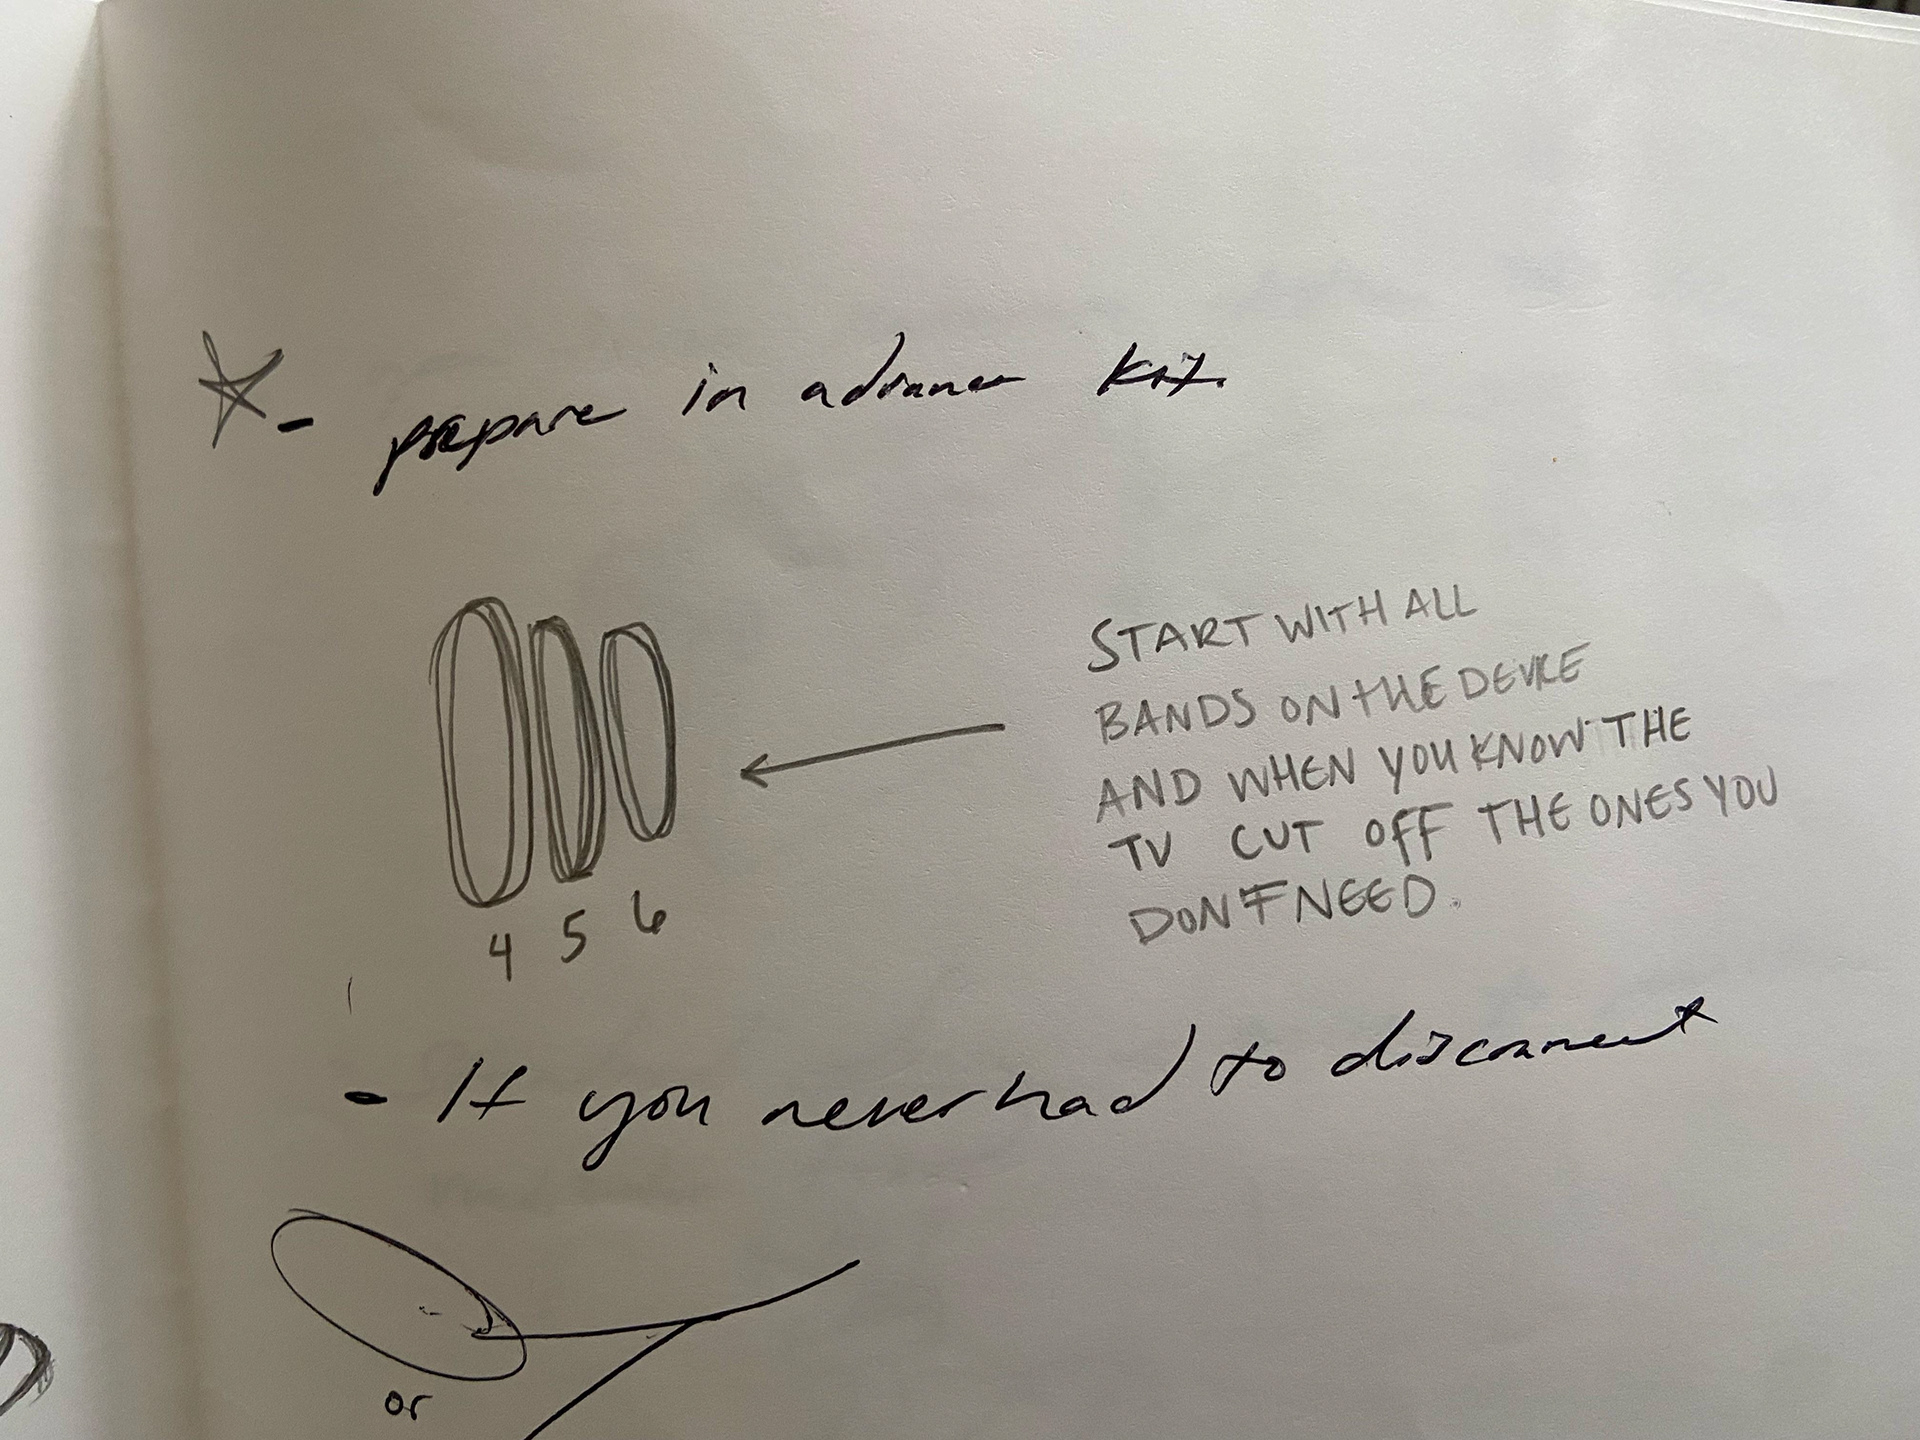 - prepare in advance kit.
START WITH ALL
BANDS ON THE DEVICE
AND WHEN YOU KNOW THE
TV CUT OFF THE ONES YOU
DON'T NEED.
4 5 6
- If you never had to disconnect
or